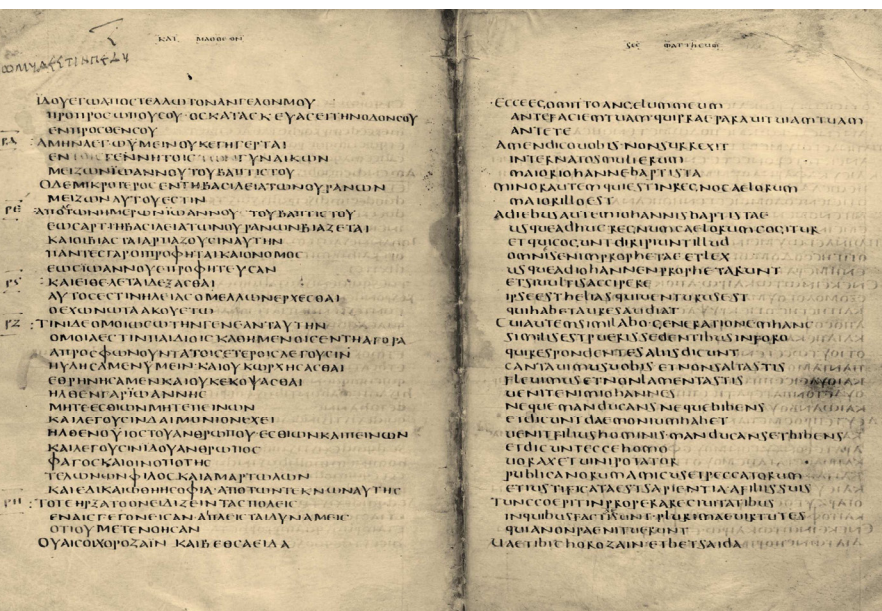 ΚΑΤ ΜΑΘΘΕΟΝ
ΙΔΟΥΕΓΩΑΠΟΣΤΕΛΛΩΤΟΝΑΝΓΕΛΟΝΜΟΥ
ΠΡΟΠΡΟΣΩΠΟΥΣΟΥ·ΟΣΚΑΤΑΣΚΕΥΑΣΕΙΤΗΝΟΔΟΝΣΟΥ
ΕΝΠΡΟΣΘΕΝΣΟΥ
ΡΔ ΑΜΗΝΛΕΓΩΥΜΕΙΝΟΥΚΕΓΗΓΕΡΤΑΙ
ΕΝΤΟΙΣΓΕΝΝΗΤΟΙΣΤΩΝΓΥΝΑΙΚΩΝ
ΜΕΙΖΩΝΙΩΑΝΝΟΥΤΟΥΒΑΠΤΙΣΤΟΥ
ΟΔΕΜΙΚΡΟΤΕΡΟΣΕΝΤΗΒΑΣΙΛΕΙΑΤΩΝΟΥΡΑΝΩΝ
ΜΕΙΖΩΝΑΥΤΟΥΕΣΤΙΝ
ΡΕ ΑΠΟΤΩΝΗΜΕΡΩΝΙΩΑΝΝΟΥ ΤΟΥΒΑΠΤΙΣΤΟΥ
ΕΩΣΑΡΤΙΗΒΑΣΙΛΕΙΑΤΩΝΟΥΡΑΝΩΝΒΙΑΖΕΤΑΙ
ΚΑΙΟΙΒΙΑΣΤΑΙΑΡΠΑΖΟΥΣΙΝΑΥΤΗΝ
ΠΑΝΤΕΣΓΑΡΟΙΠΡΟΦΗΤΑΙΚΑΙΟΝΟΜΟΣ
ΕΩΣΙΩΑΝΝΟΥΕΠΡΟΦΗΤΕΥΣΑΝ
ΡΣ ΚΑΙΕΙΘΕΛΕΤΑΙΔΕΞΑΣΘΑΙ
ΑΥΤΟΣΕΣΤΙΝΗΛΕΙΑΣΟΜΕΛΛΩΝΕΡΧΕΣΘΑΙ
ΟΕΧΩΝΩΤΑΑΚΟΥΕΤΩ
ΡΖ ΤΙΝΙΔΕΟΜΟΙΩΣΩΤΗΝΓΕΝΕΑΝΤΑΥΤΗΝ
ΟΜΟΙΑΕΣΤΙΝΠΑΙΔΙΟΙΣΚΑΘΗΜΕΝΟΙΣΕΝΤΗΑΓΟΡΑ
ΑΠΡΟΣΦΩΝΟΥΝΤΑΤΟΙΣΕΤΕΡΟΙΣΛΕΓΟΥΣΙΝ
ΗΥΛΗΣΑΜΕΝΥΜΕΙΝ·ΚΑΙΟΥΚΩΡΧΗΣΑΣΘΑΙ
ΕΘΡΗΝΗΣΑΜΕΝΚΑΙΟΥΚΕΚΟΨΑΣΘΑΙ
ΗΛΘΕΝΓΑΡΙΩΑΝΝΗΣ
ΜΗΤΕΕΣΘΙΩΝΜΗΤΕΠΕΙΝΩΝ
ΚΑΙΛΕΓΟΥΣΙΝΔΑΙΜΟΝΙΟΝΕΧΕΙ
ΗΛΘΕΝΟΥΙΟΣΤΟΥΑΝΘΡΩΠΟΥ·ΕΣΘΙΩΝΚΑΙΠΕΙΝΩΝ
ΚΑΙΛΕΓΟΥΣΙΝΙΔΟΥΑΝΘΡΩΠΟΣ
ΦΑΓΟΣΚΑΙΟΙΝΟΠΟΤΗΣ
ΤΕΛΩΝΩΝΦΙΛΟΣΚΑΙΑΜΑΡΤΩΛΩΝ
ΚΑΙΕΔΙΚΑΙΩΘΗΗΣΟΦΙΑ·ΑΠΟΤΩΝΤΕΚΝΩΝΑΥΤΗΣ
ΡΗ ΤΟΤΕΗΡΞΑΤΟΟΝΕΙΔΙΖΕΙΝΤΑΣΠΟΛΕΙΣ
ΕΝΑΙΣΓΕΓΟΝΕΙΣΑΝ·ΑΙΠΛΕΙΣΤΑΙΔΥΝΑΜΕΙΣ
ΟΤΙΟΥΜΕΤΕΝΟΗΣΑΝ
ΟΥΑΙΣΟΙΧΟΡΟΖΑΙΝ ΚΑΙΒΕΘΣΑΕΙΔΑ
SEC MATTHEUM
ECCEEGOMITTOANGELUMMEUM
ANTEFACIEMTUAM·QUIPRAEPARAUITUIAMTUAM
ANTETE
AMENDICOUOBIS·NONSURREXIT
INTERNATOSMULIERUM
MAIORIOHANNEBAPTISTA
MINORAUTEMQUIESTINREGNOCAELORUM
MAIORILLOEST
ADIEBUSAUTEMIOHANNISBAPTISTAE
USQUEADHUCREGNUMCAELORUMCOGITUR
ETQUICOGUNTDIRIPIUNTILLUD
OMNISENIMPROPHETAEETLEX
USQUEADIOHANNENPROPHETARUNT
ETSIUULTISACCIPERE
IPSEESTHELIASQUIUENTURUSEST
QUIHABETAURESAUDIAT
CUIAUTEMSIMILABO·GENERATIONEMHANC
SIMILISESTPUERISSEDENTIBUSINFORO
QUIRESPONDENTESALIISDICUNT
CANTAUIMUSUOBIS ETNONSALTASTIS
FLEUIMUSETNONLAMENTASTIS
UENITENIMIOHANNES
NEQUEMANDUCANS NEQUEBIBENS
ETDICUNTDAEMONIUMHABET
UENITFILIUSHOMINIS·MANDUCANSETBIBENS
ETDICUNTECCEHOMO
UORAXETUINIPOTATOR
PUBLICANORUMAMICUSETPECCATORUM
ETIUSTIFICATAESTSAPIENTIA·AFILIISSUIS
TUNCCOEPITINPROPERARECIUITATIBUS
INQUIBUSFACTISUNT·PLURIMAEUIRTUTES
QUIANONPAENITUERUNT
UAETIBICHOROZAIN·ETBETSAIDA